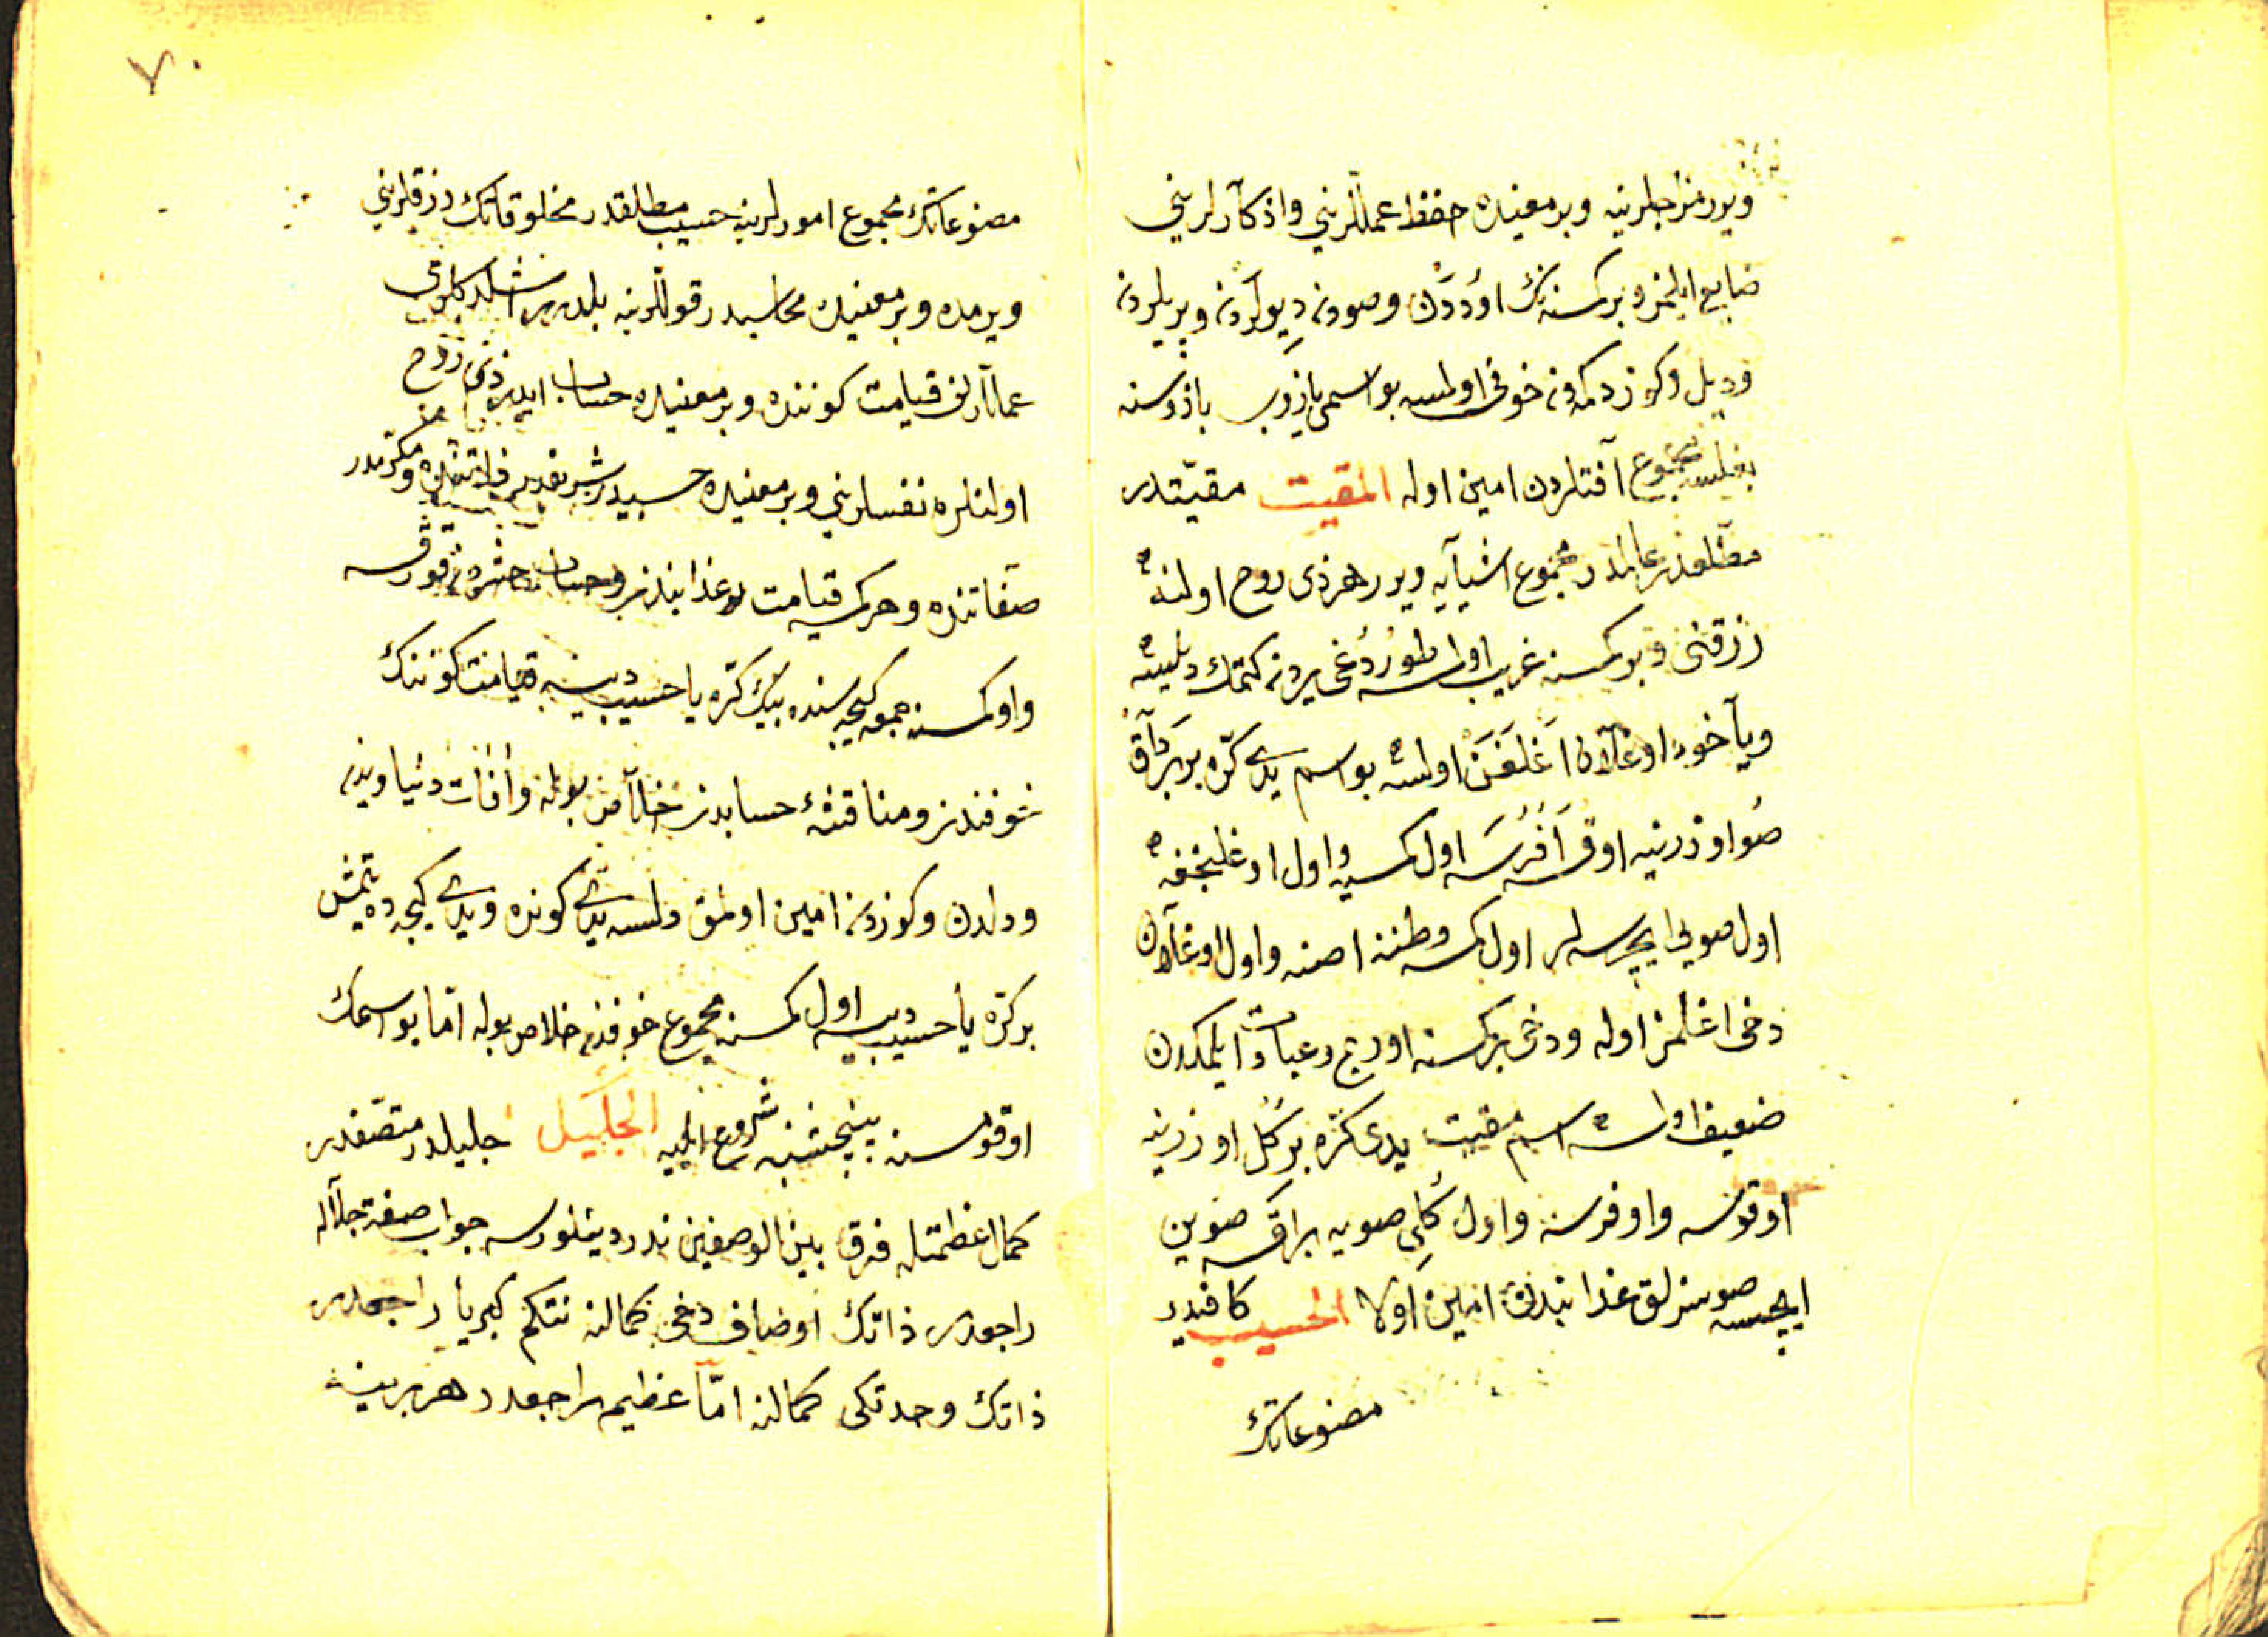 ویرر مزاجلرینه وبر معنیده حفظ عمللرینی واذكارلرینی
ضایع ایلمز وبر كمسنه نك اوددن وصودن دیولردن وپریلردن
ودیل وكوز دكمه دن خوفی اولسه بو اسمی یازوب بازوسنه
بغلسه مجموع آفتلردن امین اوله المقیت مقیتدر
مطلقدر عالمدر مجموع اشیایه ویرر هر ذی روح اولنه
رزقنی وبر كمسنه غریب اولسه طوردغی یردن كتمك دیلسه
ویاخود اوغلان اغلغن اولسه بو اسم یدی كره بر برداق
صو اوزرینه اوقسه افرسه اول كمسیه واول اوغلنجغه
اول صویی ایچرسه لر اول كمسه وطننه اصنه واول اوغلان
دخی اغلمز اوله ودخی بر كمسنه اورج وعبادت ایلمكدن
ضعیف اولسه اسم مقیت یدی كره بر كل اوزرینه
اوقوسه واوفرسه واول كلی صویه براقسه صوین
ایچسه صوسزلق عذابندن امین اولا الحسیب كافیدر
مصنوعاتك
٧٠
مصنوعاتك مجموع امورلرینه حسیب مطلقدر مخلوقاتك رزقلرینی
ویرمده وبر معنیده محاسبدر قوللرینه بلدرر اشلدكلری
عمللرن قیامت كوننده وبر معنیده حساب ایدر ذی روح
اولنلره نفسلرینی وبر معنیده حسیبدر شریفدر ذاتنده ومكرمدر
صفاتنده وهر كمسه قیامت عذابندن وحساب حشردن قورقسه
واو كمسنه جمعه كیجه سنده بیك كره یا حسیب دیسه قیامت كوننك
خوفندن ومناقشهٔ حسابدن خلاص بوله وافات دنیاویدن
ودلدن وكوزدن امین اولمق دلسه یدی كونده ویدی كیجه ده یتمش
بر كره یا حسیب دیسه اول كمسنه مجموع خوفدن خلاص بوله اما بو اسمك
اوقومسنه پنجشنبه شروع ایلیه الجلیل جلیلدر متصفدر
كمال عظمتله فرق بین الوصفین ندر دینلورسه جواب صفة جلاله
راجعدر ذاتك اوصاف دخی كمالنه نتكم كبریا راجعدر
ذاتك وحدتكی كمالنه اما عظیم راجعدر هر برینه